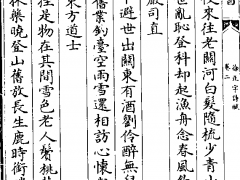 卷二
來往老關河白髮隨梳少青山
世亂恥登科却起漁舟念春風
嚴司直
避世出關東有酒劉伶醉無兒
舊業釣臺空雨雪還相訪心懷
東方道士
往是物在其間雪色老人鬢桃
林藥曉登山舊放長生鹿時銜